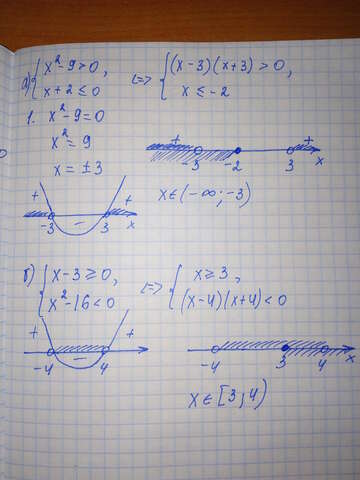 а) { x² - 9 > 0, <=> { (x - 3)(x + 3) > 0,
x + 2 ≤ 0 x ≤ -2
1. x² - 9 = 0
x² = 9
x = ±3
+ + -3 -2 3 x
+ - + -3 3 x
x ∈ (-∞; -3)
б) { x - 3 ≥ 0, <=> { x ≥ 3,
x² - 16 < 0 (x - 4)(x + 4) < 0
+ - + -4 4
-4 3 4 x
x ∈ [3; 4)